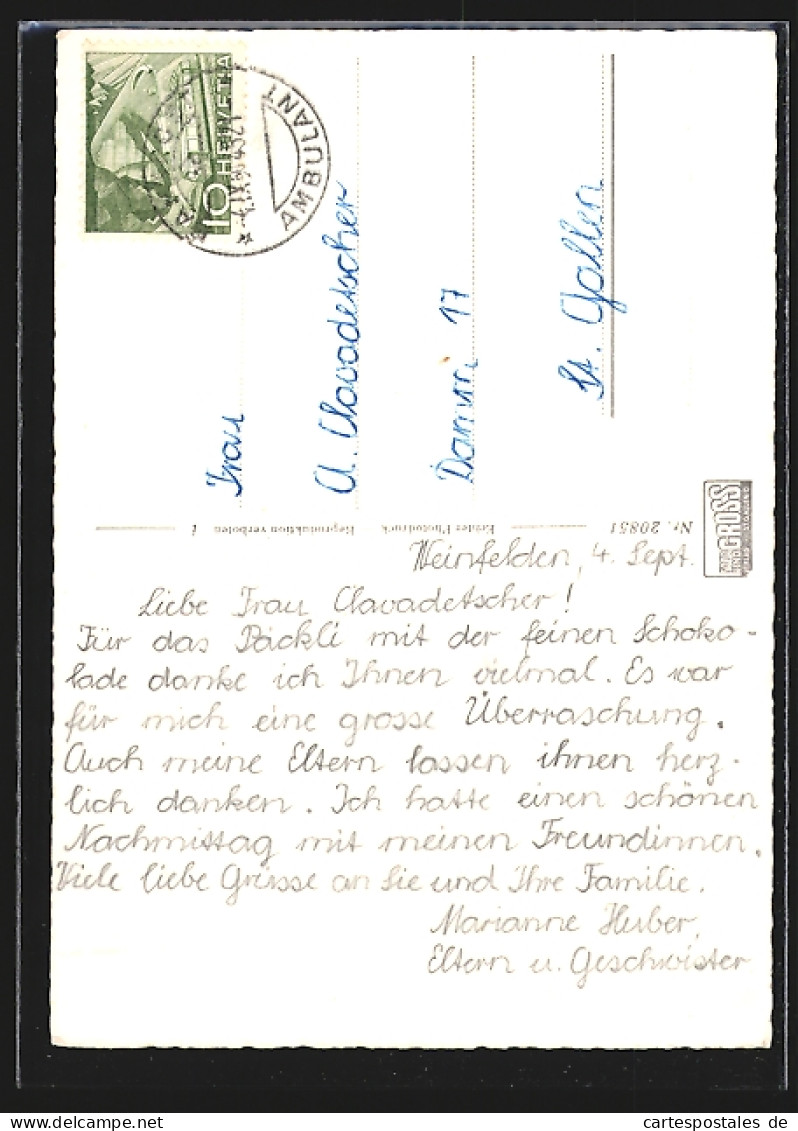 10 HELVETIA
AMBULANT
Frau
A. Clavadetscher
St. Gallen
Echter Photodruck Reproduktion verboten
Nr. 20851
GROSS
Weinfelden, 4. Sept.
Liebe Frau Clavadetscher!
Für das Päckli mit der feinen Schoko-
lade danke ich Ihnen vielmal. Es war
für mich eine grosse Überraschung.
Auch meine Eltern lassen ihnen herz-
lich danken. Ich hatte einen schönen
Nachmittag mit meinen Freundinnen.
Viele liebe Grüsse an Sie und Ihre Familie.
Marianne Huber,
Eltern u. Geschwister
cartespostales de